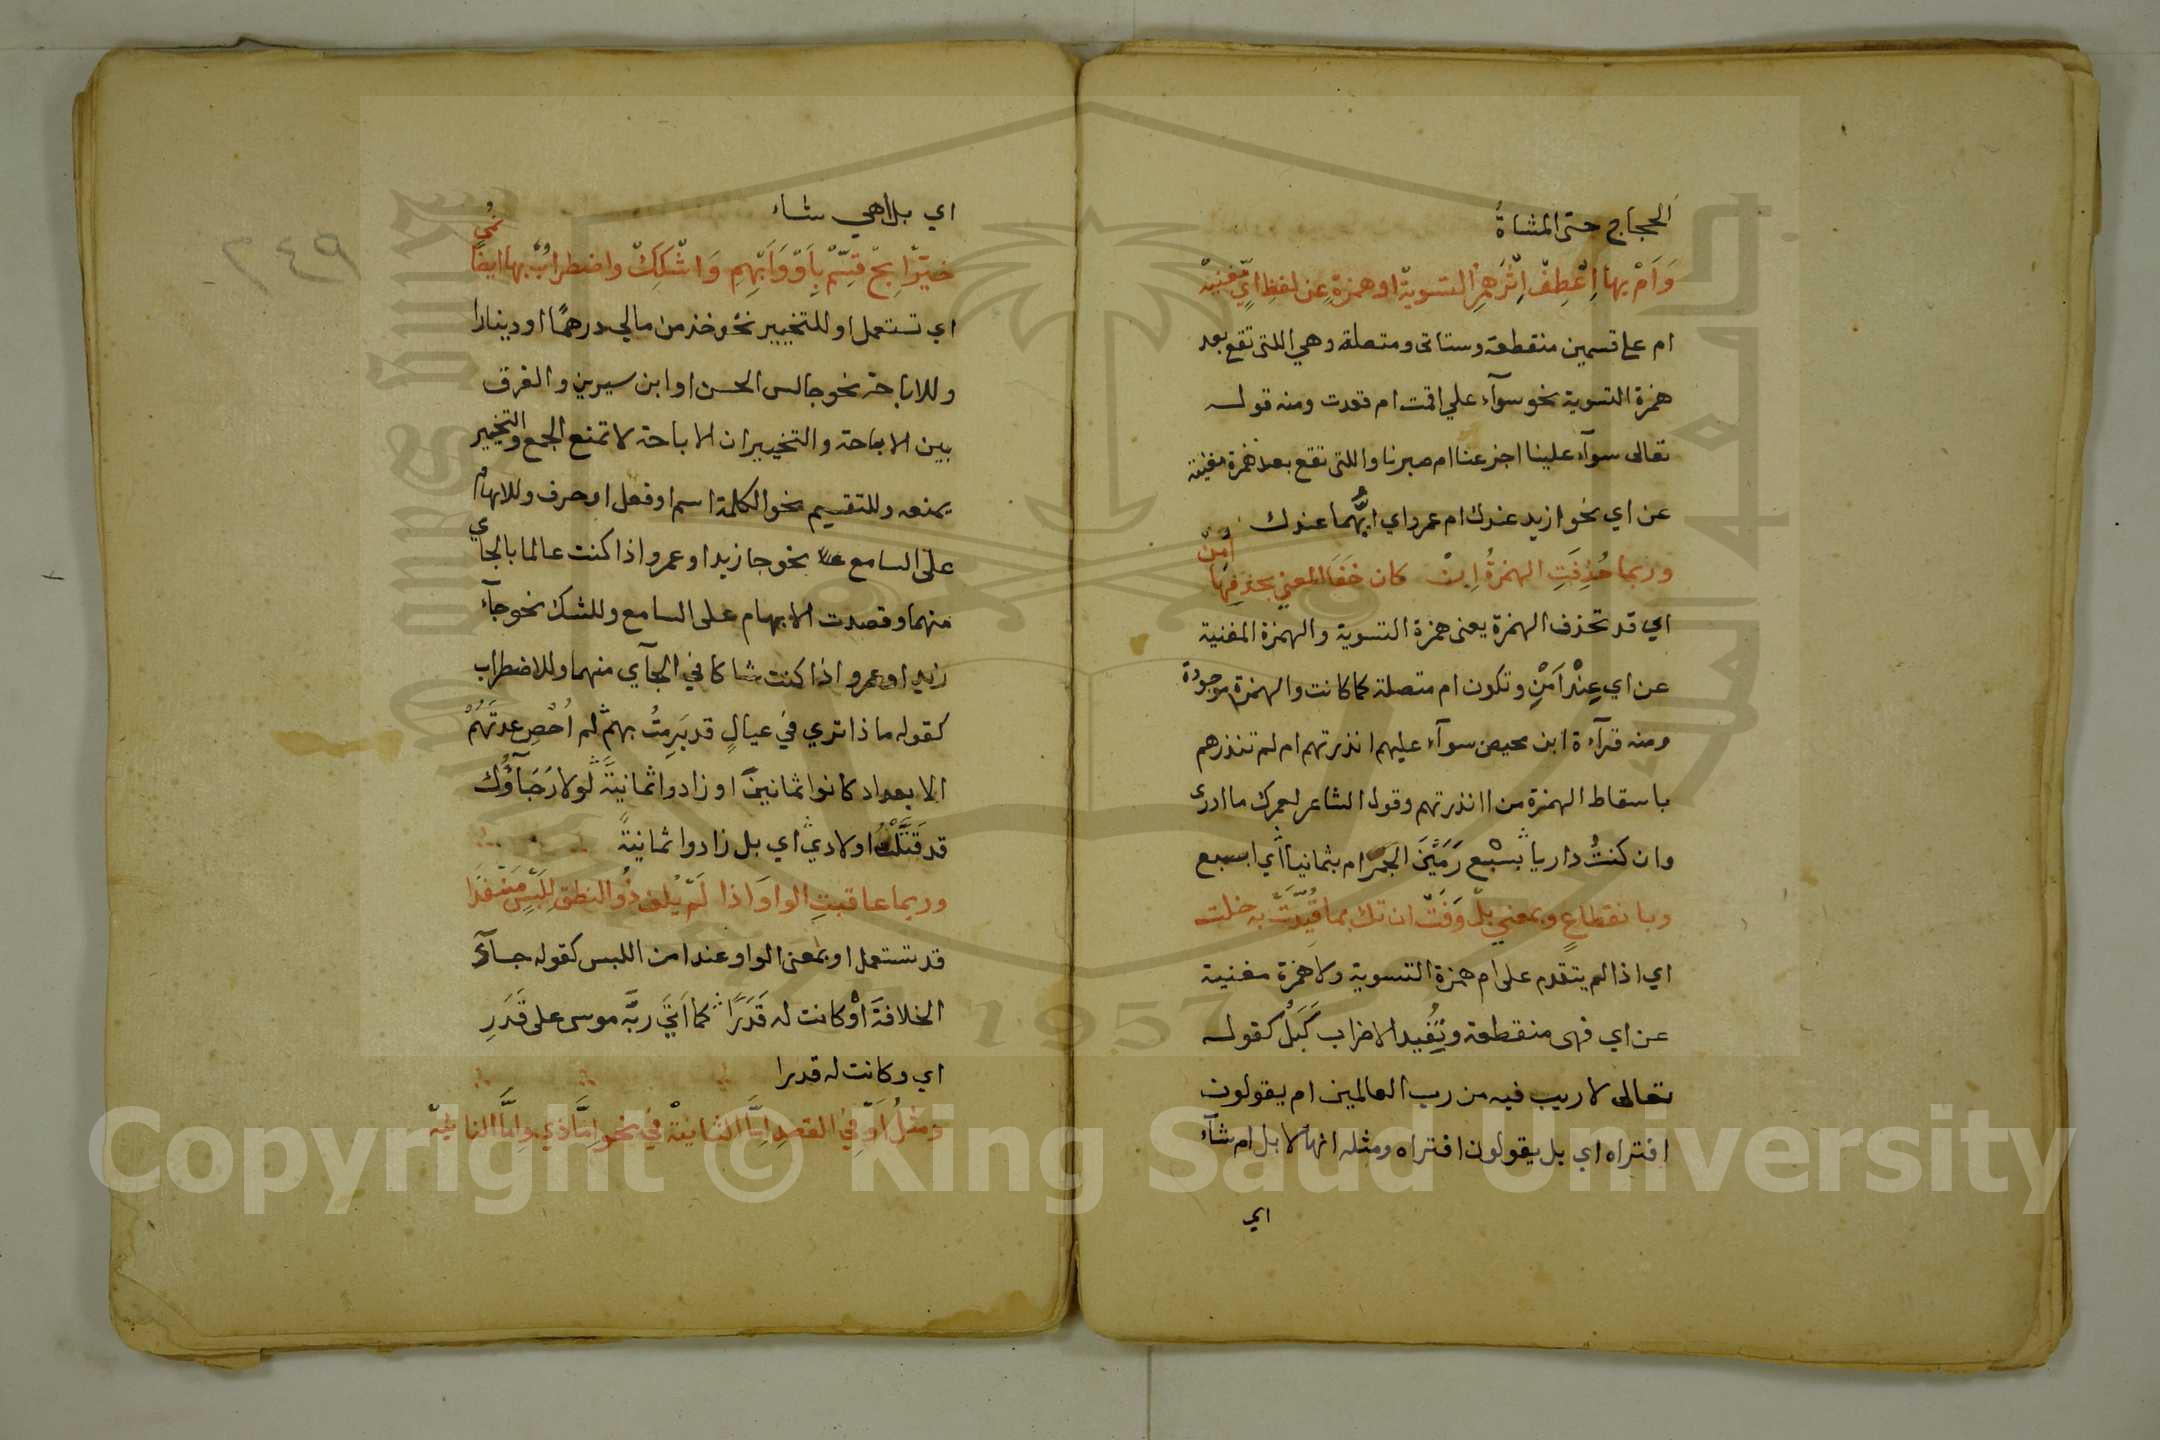 الحجاج حتى المشاةُ
وَاَمْ بها اِعْطِفْ اِثْرَ هَمْزِ التسويةْ او همزةٍ عن لفظِ ايٍّ مغنيةْ
ام على قسمين منقطعة وستاتى ومتصلة وهي اللتى تقع بعد
همزة التسوية نحو سوآء علي اقمت ام قعدت ومنه قوله
تعالى سوآء علينا اجزعنا ام صبرنا واللتى تقع بعد همزة مغنية
عن اي نحو ازيد عندك ام عمرو اي ايُّهما عندك
وربما حُذِفَتِ الهمزةُ اِنْ كان خَفَا المعني بحذفِها أُمِنْ
اي قد تحذف الهمزة يعنى همزة التسوية والهمزة المغنية
عن اي عِنْدَ اَمْنٍ وتكون ام متصلة كما كانت والهمزة موجودة
ومنه قرآءة ابن محيصن سوآء عليهم انذرتهم ام لم تنذرهم
باسقاط الهمزة من اانذرتهم وقول الشاعر لعمرك ما ادرى
وان كنتُ داريا بسْبْع رَمَيْنَ الجَمْرَ ام بثمانيا اي ابسبع
وبانقطاعٍ وبمعني بلْ وَفَتْ ان تك مما قُيِّدَتْ به خلت
اي اذا لم يتقدم على ام همزة التسوية ولا همزة مغنية
عن اي فهى منقطعة وتُفِيد الاضراب كَبَلْ كقوله
تعالى لا ريب فيه من رب العالمين ام يقولون
افتراه اي بل يقولون افتراه ومثله انها لابل ام شآء
اي
اي بل اهي شاء
خيّرْ ابِحْ قسِّمْ بِاَوْ وَاَبْهِمِ وَاشْكِكْ واضطرابٌ بها ايضًا نُمي
اي تستعمل او للتخيير نحو خذ من مالي درهمًا او دينارا
وللاباحة نحو جالس الحسن او ابن سيرين والفرق
بين الاباحة والتخيير ان الاباحة لا تمنع الجمع والتخيير
يمنعه وللتقسيم نحو الكلمة اسم او فعل او حرف وللابهام
على السامع نحو جا زيد او عمرو اذا كنت عالما بالجاي
منهما وقصدت الابهام على السامع وللشك نحو جآء
زيد او عمرو اذا كنت شاكا في الجآي منهما وللاضطراب
كقوله ماذا تري في عيالٍ قد بَرِمتُ بهم لم اُحْصِ عدتَهُمْ
الا بعداد كانوا ثمانينَ او زادوا ثمانيةً لولا رَجَآؤُك
قد قَتَّلْتُ اولادي اي بل زادوا ثمانيةً
وربما عاقبتِ الواوَ اذا لَمْ يُلفِ ذُو النطقِ لِلَبْسٍ مَنْفَذَا
قد تستعمل او بمعنى الواو عند امن اللبس كقوله جآء
الخلافةَ اَوْ كانت له قَدَرًا كما اَتَي ربَّه موسى على قَدَرِ
اي وكانت له قدرا
ومثلُ اَوْ في القصدِ اِمَّا الثانيةْ في نحو اِمَّا ذي وامَّا النائيةْ
٢٤٩
Copyright © King Saud University
1957